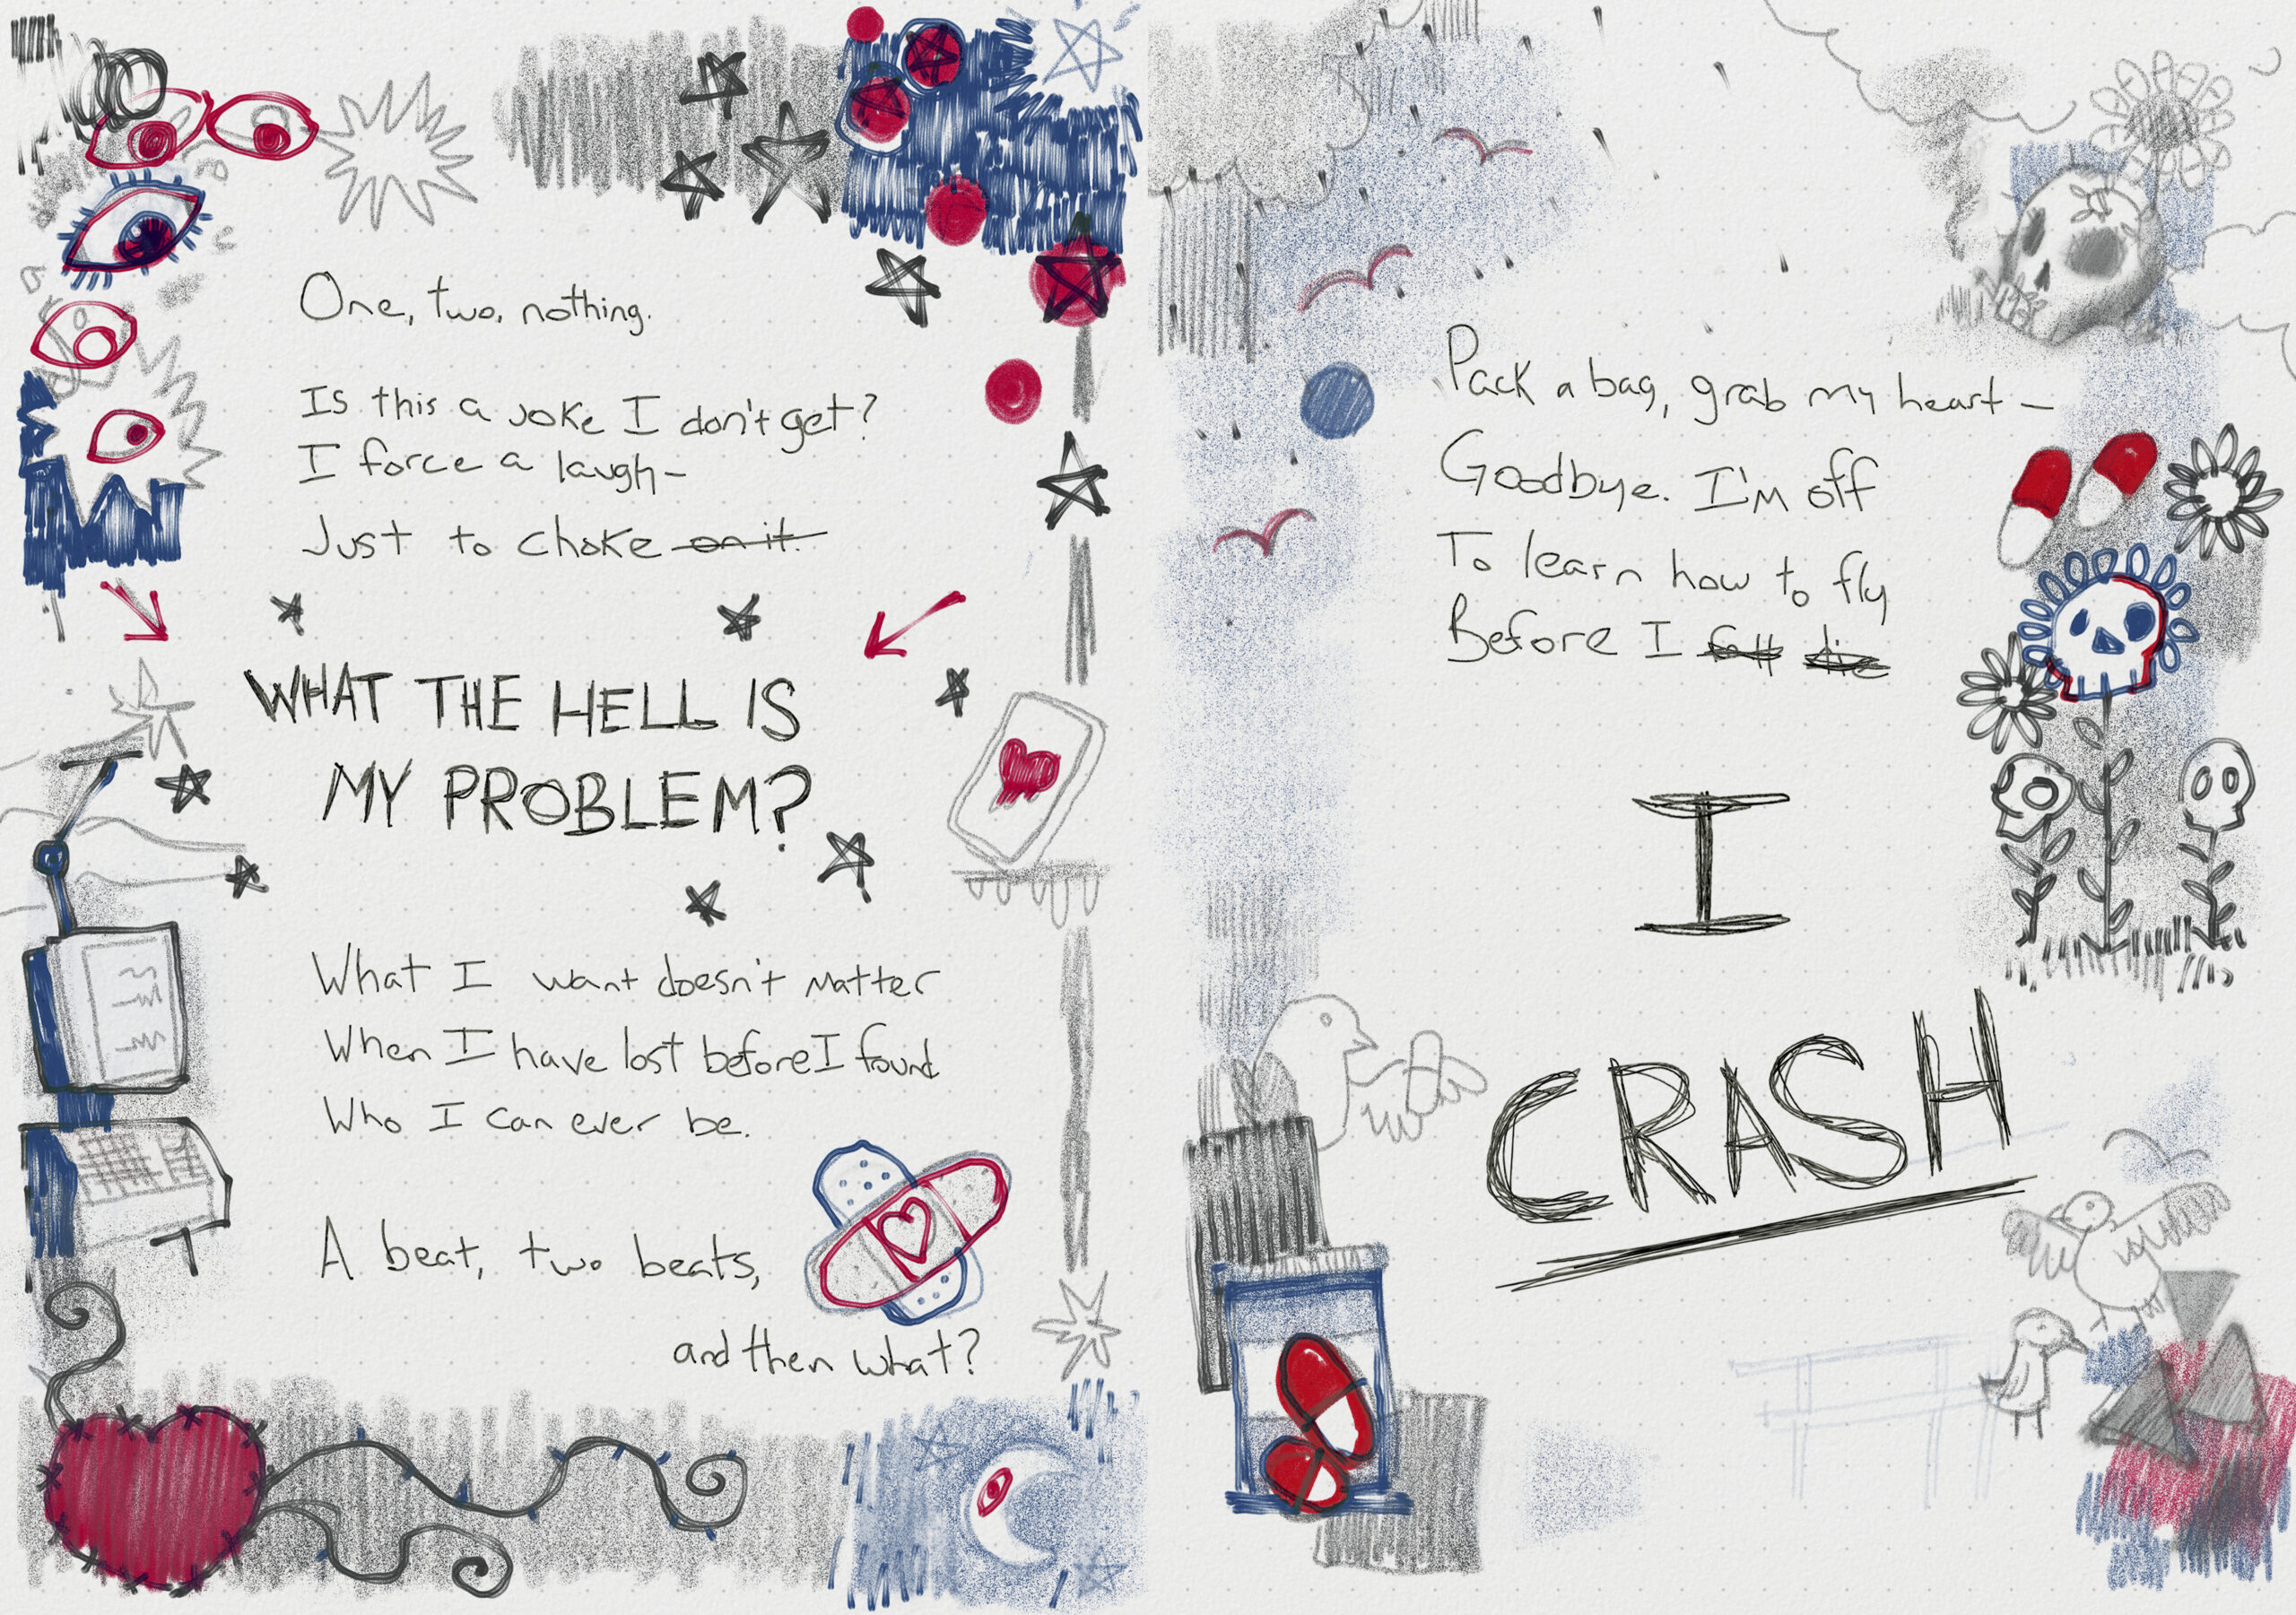 One, two, nothing.
Is this a joke I don't get?
I force a laugh-
Just to choke on it.
WHAT THE HELL IS
MY PROBLEM?
What I want doesn't matter
When I have lost before I found
Who I can ever be.
A beat, two beats,
and then what?
Pack a bag, grab my heart-
Goodbye. I'm off
To learn how to fly
Before I fall die
I
CRASH